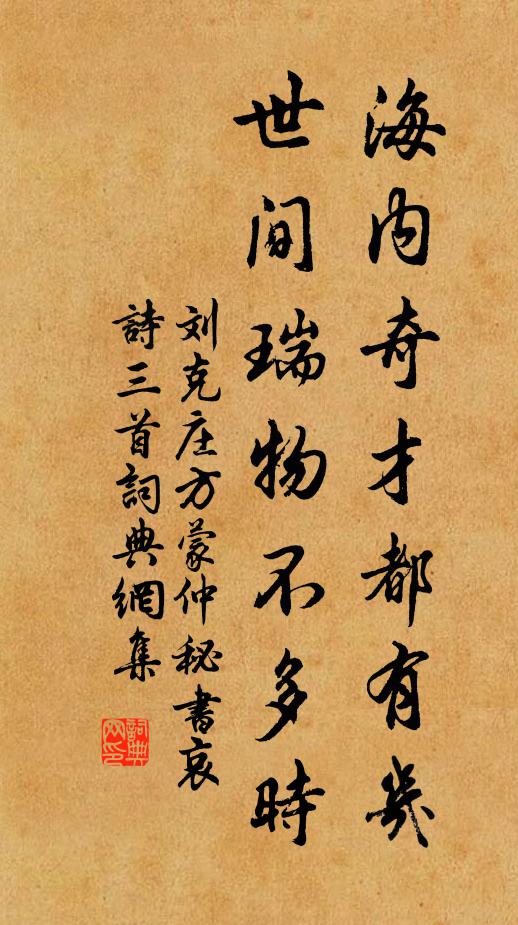 海内奇才都有幾
世间瑞物不多時
刘克庄方蒙仲秘書哀
詩三首詞典網集
詞典网印